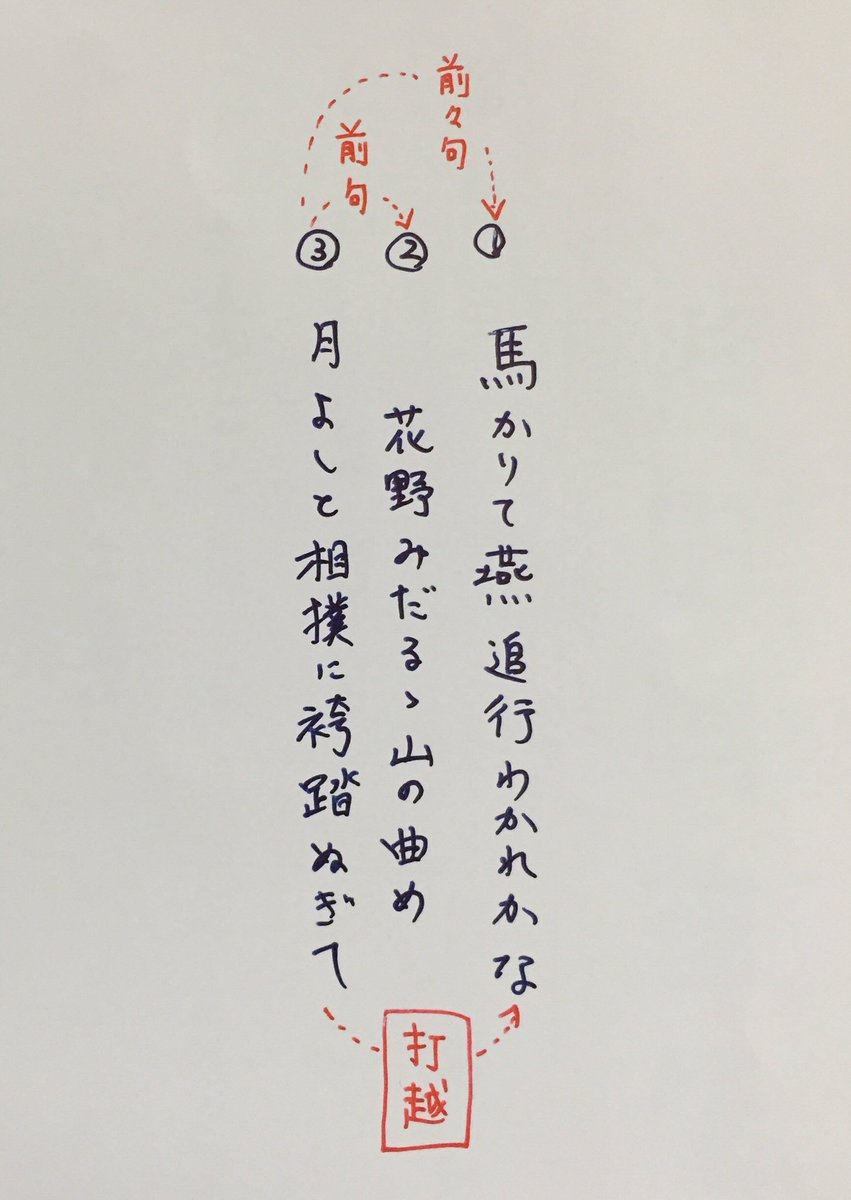 前々句
前句
①
②
③
馬かりて燕追行わかれかな
花野みだるゝ山の曲め
月よしと相撲に袴踏ぬぎて
打越